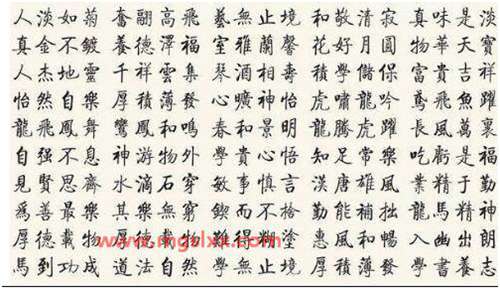 人淡如菊奮翮高飛藝無止境和敬清寂真味是淡
真金不鍍養德澤福室雅蘭馨花好月圓物華天寶
人杰地靈千祥雲集琴酒相壽積學儲保富貴吉祥
怡然自樂厚積薄發心曠神怡虎嘯龍吟鳶飛魚躍
龍飛鳳舞鸞鳳和鳴春和景明龍騰虎躍長風萬裏
自强不息神游物外學貴心悟知足常樂吃虧是福
見賢思齊水滴石穿敏事慎言漢唐雄風業精于勤
爲善最樂其樂無窮鍥而不捨勤能補拙龍馬精神
厚德載物難得糊塗惠風和暢入幽出朗
馬到功成道法自然學無止境厚積薄發學書養志